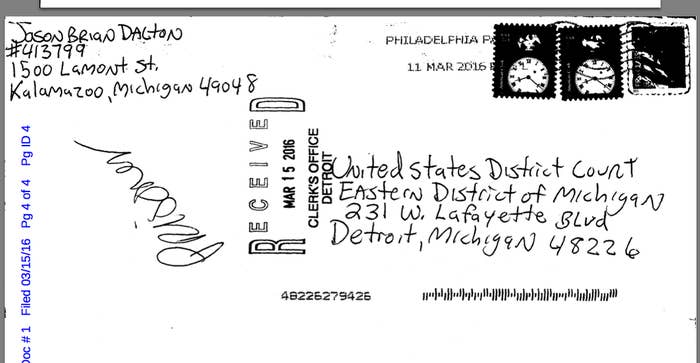 Jason Brian Dalton
#413799
1500 Lamont St.
Kalamazoo, Michigan 49048
PHILADELPHIA PA
11 MAR 2016
RECEIVED
MAR 15 2016
CLERK'S OFFICE
DETROIT
United States District Court
Eastern District of Michigan
231 W. Lafayette Blvd
Detroit, Michigan 48226
48226279426
Doc # 1 Filed 03/15/16 Pg 4 of 4 Pg ID 4